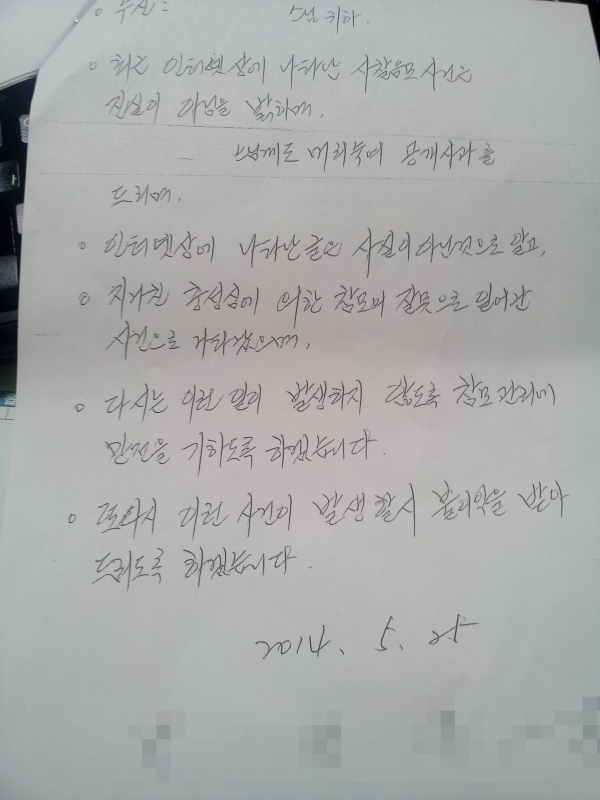 ○ 수신 : 스님 귀하.
○ 최근 인터넷상에 나타난 사찰음모사건은
진실이 아님을 밝히며,
스님께도 머리숙여 공개사과를
드리며.
○ 인터넷상에 나타난 글은 사실이 아닌것으로 알고,
○ 지나친 충성심에 의한 참모의 잘못으로 일어난
사건으로
○ 다시는 이런 일이 발생하지 않도록 참모관리에
만전을 기하도록 하겠습니다.
○ 또다시 이런 사건이 발생할시 불이익을 받아
드리도록 하겠습니다.
2014. 5. 25